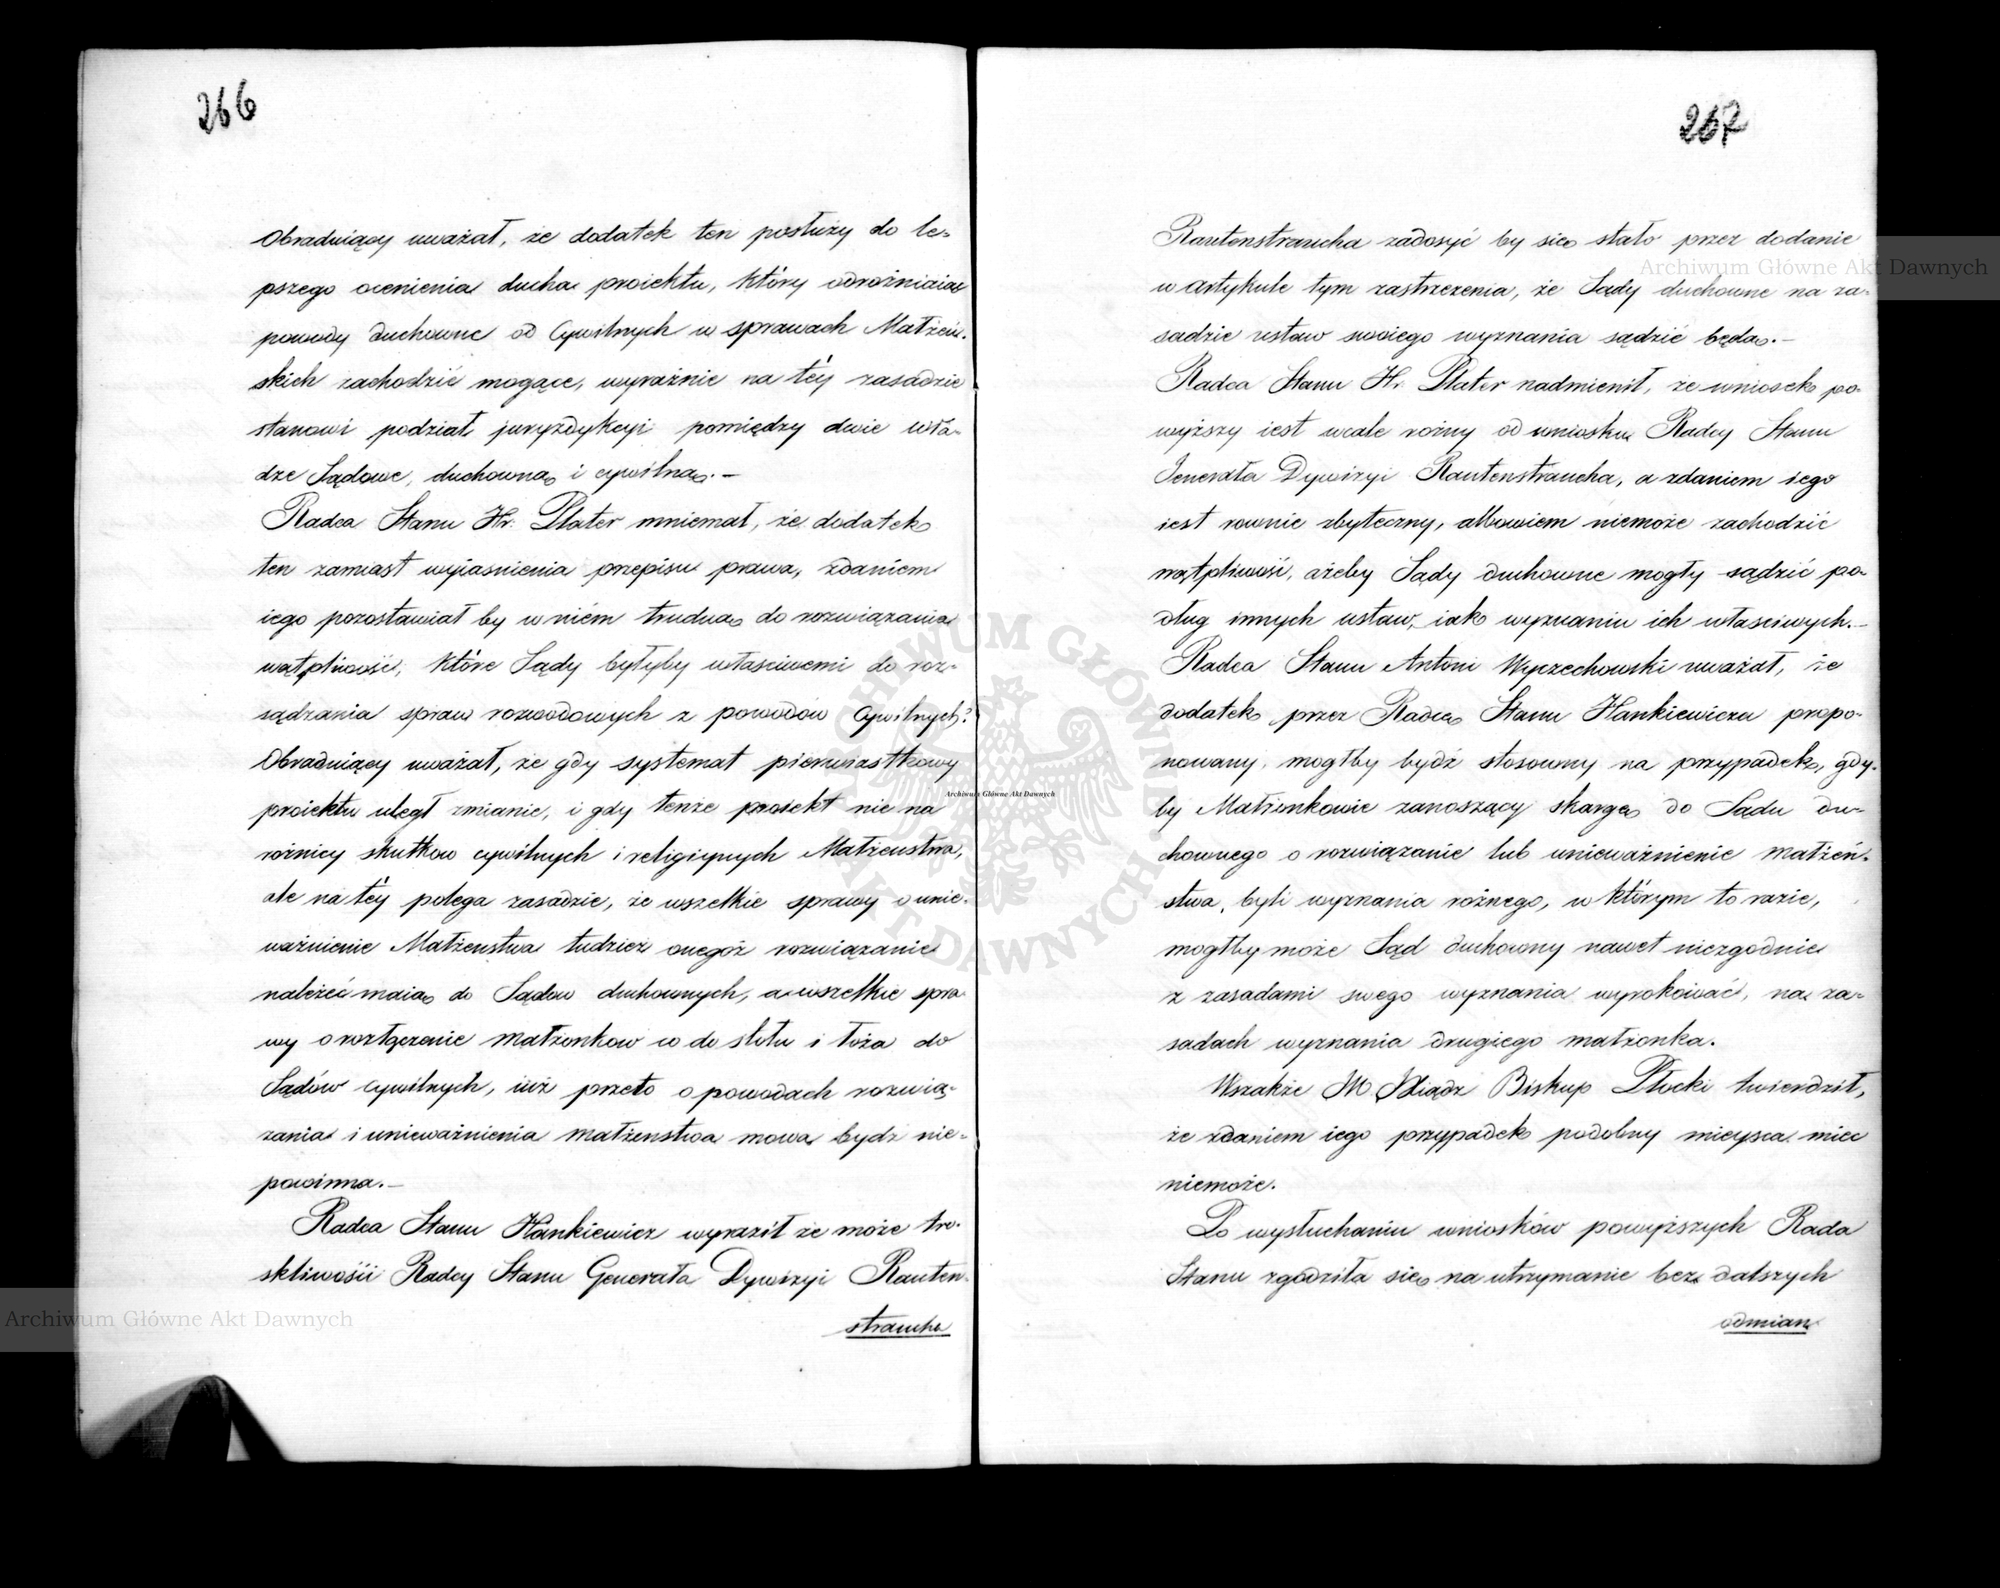 266
Obraduiący uważał, że dodatek ten posłuży do le-
pszego ocenienia ducha proiektu, który odrożniaiąc
powody duchowne od Cywilnych w sprawach Małżeń-
skich zachodzić mogące, wyraźnie na téy zasadzie
stanowi podział juryzdykcyi pomiędzy dwie wła-
dze Sądowe, duchowną i cywilną.-
Radca Stanu Hr. Plater mniemał, że dodatek
ten zamiast wyiasnienia przepisu prawa, zdaniem
iego pozostawiał by w niém trudną do rozwiązania
wątpliwość, które Sądy byłyby właściwemi do roz-
sądzania spraw rozwodowych z powodów Cywilnych?
Obraduiący uważał, że gdy systemat pierwiastkowy
proiektu uległ zmianie, i gdy tenże proiekt nie na
rożnicy skutkow cywilnych i religiynych Małżeustwa,
ale na téy polega zasadzie, że wszelkie sprawy o unie-
ważnienie Małżenstwa tudzież onegoż rozwiązanie
należeć maią do Sądow duchownych, a wszelkie spra-
wy o rozłączenie małżonkow co do stołu i łoża do
Sądów cywilnych, iuż przeto o powodach rozwią-
zania i unieważnienia małżenstwa mowa bydz nie-
powinna.-
Radca Stanu Hankiewicz wyraził że może tro-
skliwości Radcy Stanu Generała Dywizyi Rauten-
straucha
267
Rautenstraucha zadosyć by się stało przez dodanie
w artykule tym zastrzezenia, że Sądy duchowne na za-
sadzie ustaw swoiego wyznania sądzić będą.-
Radca Stanu Hr. Plater nadmienił, że wniosek po-
wyższy iest wcale rożny od wniosku Radcy Stanu
Jenerała Dywizyi Rautenstraucha, a zdaniem iego
iest rownie zbyteczny, albowiem niemoże zachodzić
wątpliwość, ażeby Sądy duchowne mogły sądzić po-
dług innych ustaw, iak wyznaniu ich właściwych.-
Radca Stanu Antoni Wyczechowski uważał, że
dodatek przez Radcę Stanu Hankiewicza propo-
nowany, mogłby bydź stosowny na przypadek, gdy-
by Małżonkowie zanoszący skargę do Sądu du-
chownego o rozwiązanie lub unieważnienie małżeń-
stwa, byli wyznania rożnego, w którym to razie,
mogłby może Sąd duchowny nawet niezgodnie
z zasadami swego wyznania wyrokować, na za-
sadach wyznania drugiego małżonka.
Wszakże JW. Xiądz Biskup Płocki twierdził,
że zdaniem iego przypadek podobny mieysca miec
niemoże.
Po wysłuchaniu wniosków powyższych Rada
Stanu zgodziła się na utrzymanie bez dalszych
odmian
Archiwum Główne Akt Dawnych
Archiwum Główne Akt Dawnych
Archiwum Główne Akt Dawnych
ARCHIWUM GŁÓWNE AKT DAWNYCH